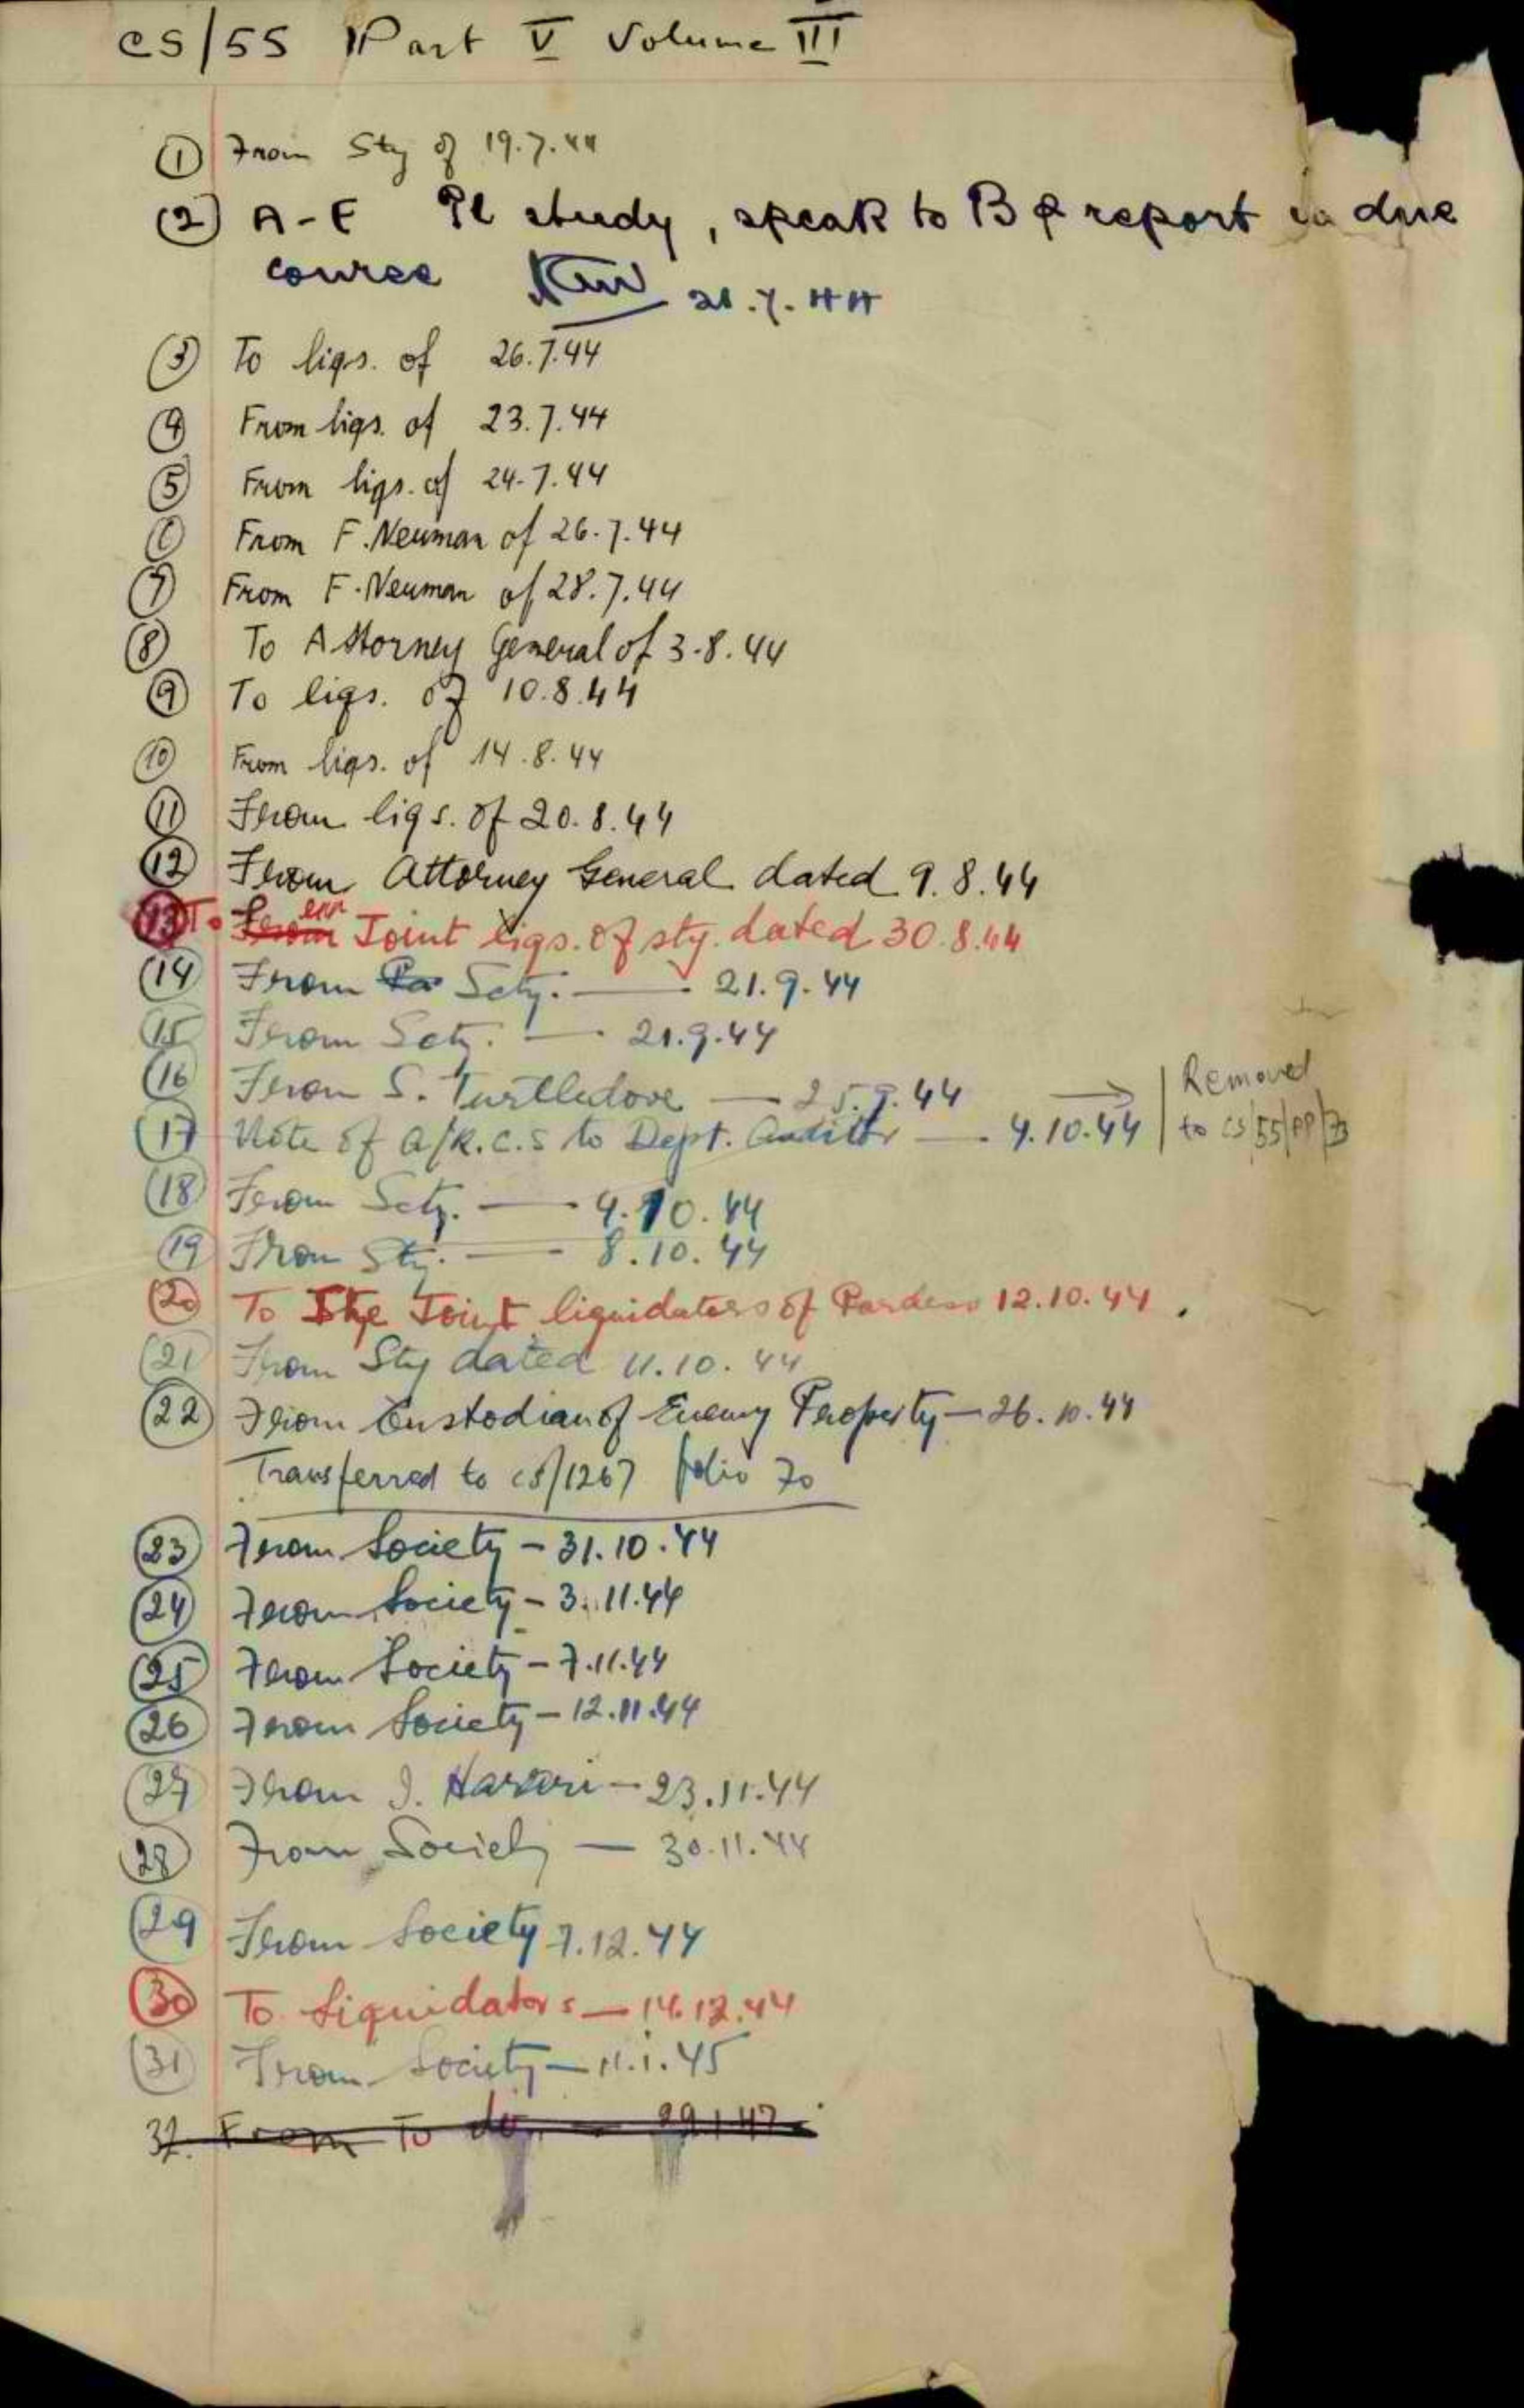 CS/55 Part V Volume III
(1) From Sty of 19.7.44
(2) A-E Pl study, speak to B & report in due
course 21.7.44
(3) To liqs. of 26.7.44
(4) From liqs. of 23.7.44
(5) From liqs. of 24.7.44
(6) From F. Neuman of 26.7.44
(7) From F. Neuman of 28.7.44
(8) To Attorney General of 3.8.44
(9) To liqs. of 10.8.44
(10) From liqs. of 14.8.44
(11) From liqs. of 20.8.44
(12) From Attorney General dated 9.8.44
(13) To From err Joint liqs. of sty. dated 30.8.44
(14) From Scty. — 21.9.44
(15) From Scty. — 21.9.44
(16) From S. Turtledove — 25.9.44
(17) Note of A/R.C.S to Dept. Auditor — 4.10.44
Removed
to CS/55/PP/73
(18) From Scty. — 4.10.44
(19) From Sty. — 8.10.44
(20) To The Joint liquidators of Pardess 12.10.44.
(21) From Sty dated 11.10.44
(22) From Custodian of Enemy Property — 26.10.44
Transferred to CS/1267 folio 70
(23) From Society — 31.10.44
(24) From Society — 3.11.44
(25) From Society — 7.11.44
(26) From Society — 12.11.44
(27) From J. Harari — 23.11.44
(28) From Society — 30.11.44
(29) From Society 7.12.44
(30) To Liquidators — 14.12.44
(31) From Society — 11.1.45
32. From To do. —